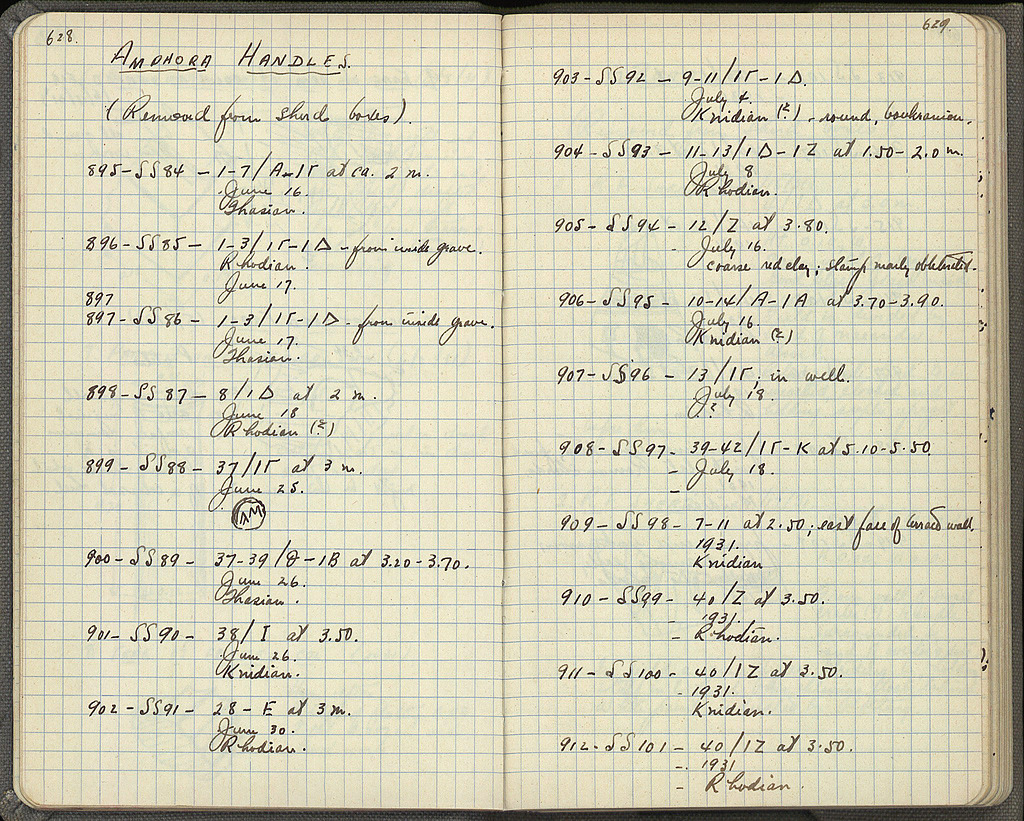 628.
AMPHORA HANDLES.
(Removed from sherd boxes).
895 - SS84 - 1-7/A-1Γ at ca. 2 m.
June 16.
Thasian.
896 - SS85 - 1-3/1Γ-1Δ - from inside grave.
Rhodian.
June 17.
897
897 - SS86 - 1-3/1Γ-1Δ - from inside grave.
June 17.
Thasian.
898 - SS87 - 8/1Δ at 2 m.
June 18
Rhodian (?)
899 - SS88 - 37/1Γ at 3 m.
June 25.
900 - SS89 - 37-39/Θ-1B at 3.20-3.70.
June 26.
Thasian.
901 - SS90 - 38/I at 3.50.
June 26.
Knidian.
902 - SS91 - 28-E at 3 m.
June 30.
Rhodian.
629.
903 - SS92 - 9-11/1Γ-1Δ.
July 4.
Knidian (?) - round, boukranion.
904 - SS93 - 11-13/1Δ-1Z at 1.50-2.0 m.
July 8
Rhodian.
905 - SS94 - 12/Z at 3.80.
July 16.
coarse red clay; stamp nearly obliterated.
906 - SS95 - 10-14/A-1A at 3.70-3.90.
July 16.
Knidian (?)
907 - SS96 - 13/1Γ; in well.
July 18.
?
908 - SS97 - 39-42/1Γ-K at 5.10-5.50.
- July 18.
-
909 - SS98 - 7-11 at 2.50; east face of terraced wall.
1931.
Knidian
910 - SS99 - 40/Z at 3.50.
- 1931.
- Rhodian.
911 - SS100 - 40/1Z at 3.50.
- 1931.
Knidian.
912 - SS101 - 40/1Z at 3.50.
- 1931
- Rhodian.